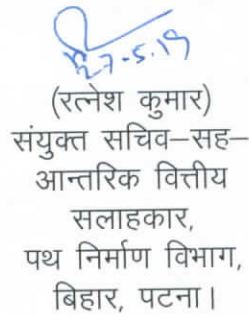 27-5-19
(रत्नेश कुमार)
संयुक्त सचिव–सह–
आन्तरिक वित्तीय
सलाहकार,
पथ निर्माण विभाग,
बिहार, पटना।